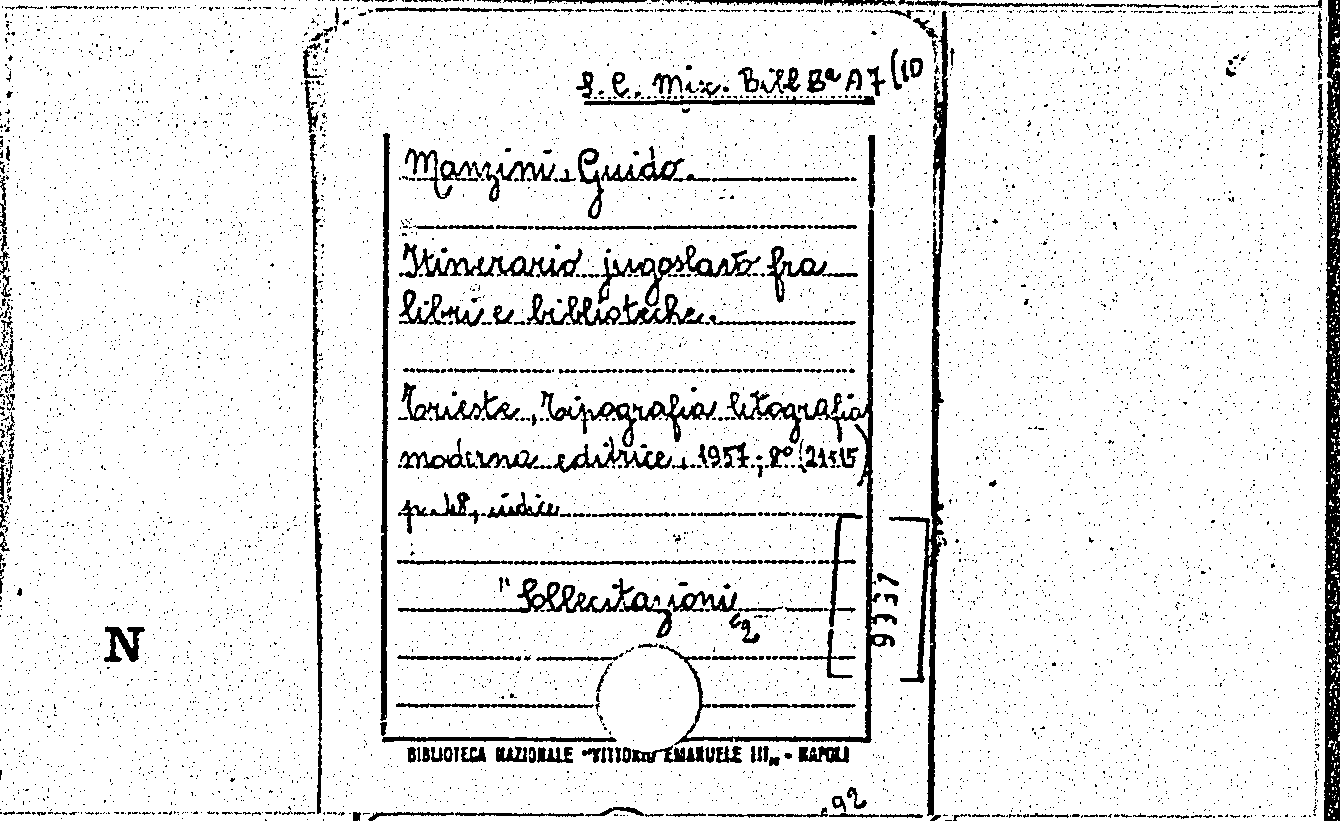 S. C. Mix. Bibl Bª A 7 (10
Manzini, Guido.
Itinerario jugoslavo fra
libri e biblioteche.
Trieste, Tipografia litografia
moderna editrice, 1957; 8° (21×15)
p. 48, indice
"Sollecitazioni,,
9337
N
BIBLIOTECA NAZIONALE "VITTORIO EMANUELE III„ - NAPOLI